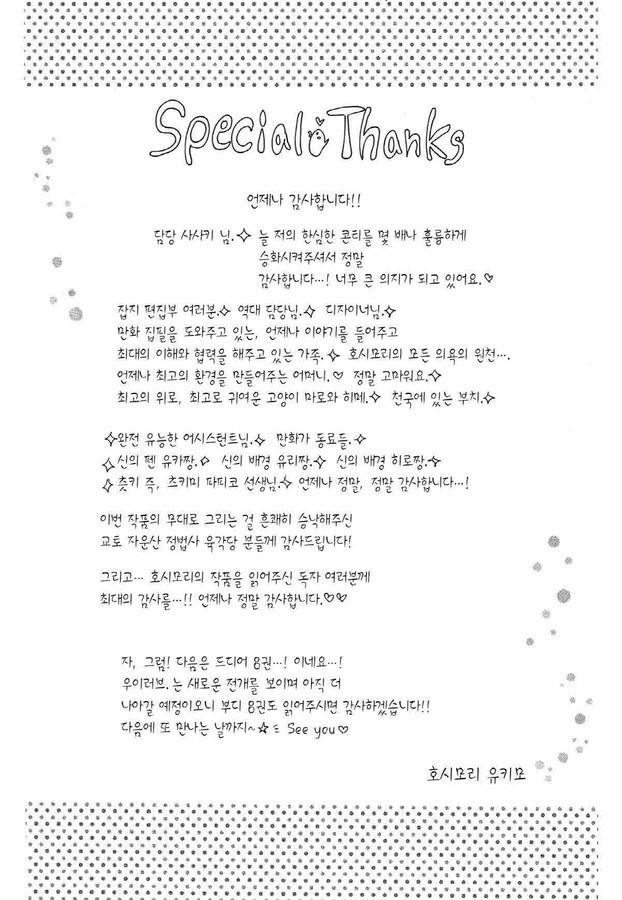 Special Thanks
언제나 감사합니다!!
담당 사사키 님.✧ 늘 저의 한심한 콘티를 몇 배나 훌륭하게
승화시켜주셔서 정말
감사합니다…! 너무 큰 의지가 되고 있어요.♡
잡지 편집부 여러분.✧ 역대 담당님.✧ 디자이너님.✧
만화 집필을 도와주고 있는, 언제나 이야기를 들어주고
최대의 이해와 협력을 해주고 있는 가족.✧ 호시모리의 모든 의욕의 원천….
언제나 최고의 환경을 만들어주는 어머니.♡ 정말 고마워요.✧
최고의 위로, 최고로 귀여운 고양이 마로와 히메.✧ 천국에 있는 부치.✧
✧완전 유능한 어시스턴트님.✧ 만화가 동료들.✧
✧신의 펜 유카짱.✧ 신의 배경 유리짱.✧ 신의 배경 히로짱.✧
✧츳키 즉, 츠키미 파피코 선생님.✧ 언제나 정말, 정말 감사합니다…!
이번 작품의 무대로 그리는 걸 흔쾌히 승낙해주신
교토 자운산 정법사 육각당 분들께 감사드립니다!
그리고… 호시모리의 작품을 읽어주신 독자 여러분께
최대의 감사를…!! 언제나 정말 감사합니다.♡♡
자, 그럼! 다음은 드디어 8권…! 이네요…!
우이러브.는 새로운 전개를 보이며 아직 더
나아갈 예정이오니 부디 8권도 읽어주시면 감사하겠습니다!!
다음에 또 만나는 날까지~☆ミ See you♡
호시모리 유키모